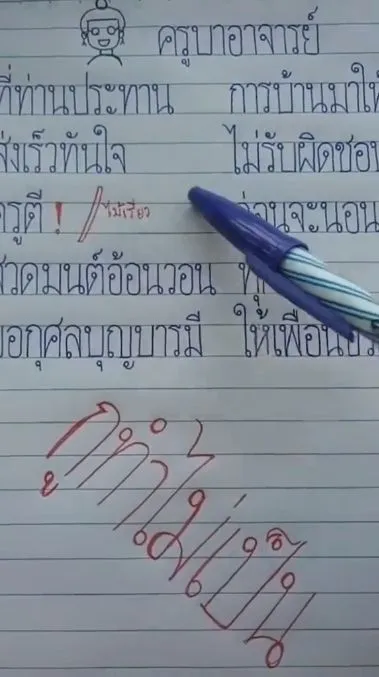 ครูบาอาจารย์
ที่ท่านประทาน การบ้านมาให้
ส่งเร็วทันใจ ไม่รับผิดชอบ
ครูตี! ไม้เรียว ก่อนจะนอน
สวดมนต์อ้อนวอน
ขอกุศลบุญบารมี ให้เพื่อน
กูทำไม่เป็น